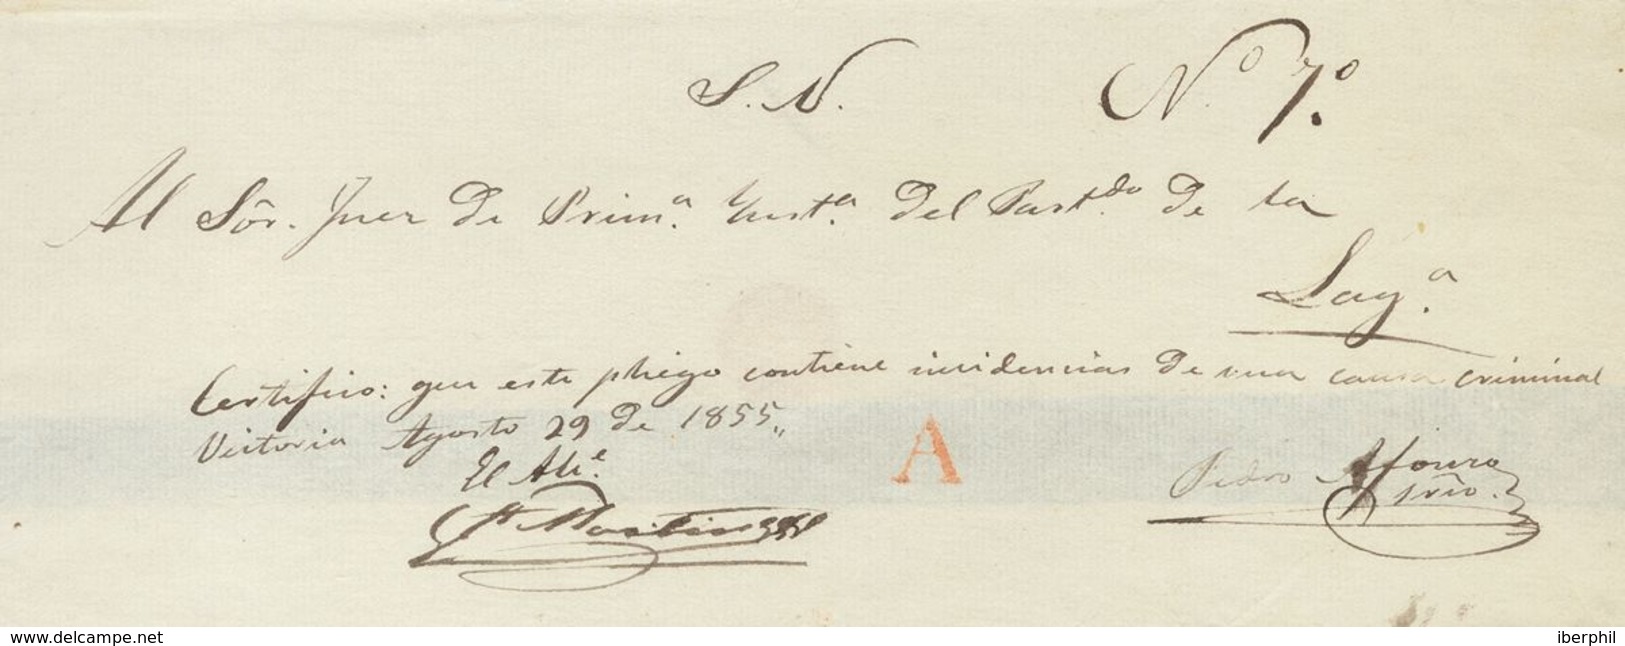 S. N. Nº 7.º
Al Sôr. Juez de Prim.ª Inst.ª del Part.do de la
Lag.ª
Certifico: que este pliego contiene incidencias de una causa criminal
Victoria Agosto 29 de 1855„
El Al.e
Martinez
A
Pedro
Srio.
www.delcampe.net
iberphil